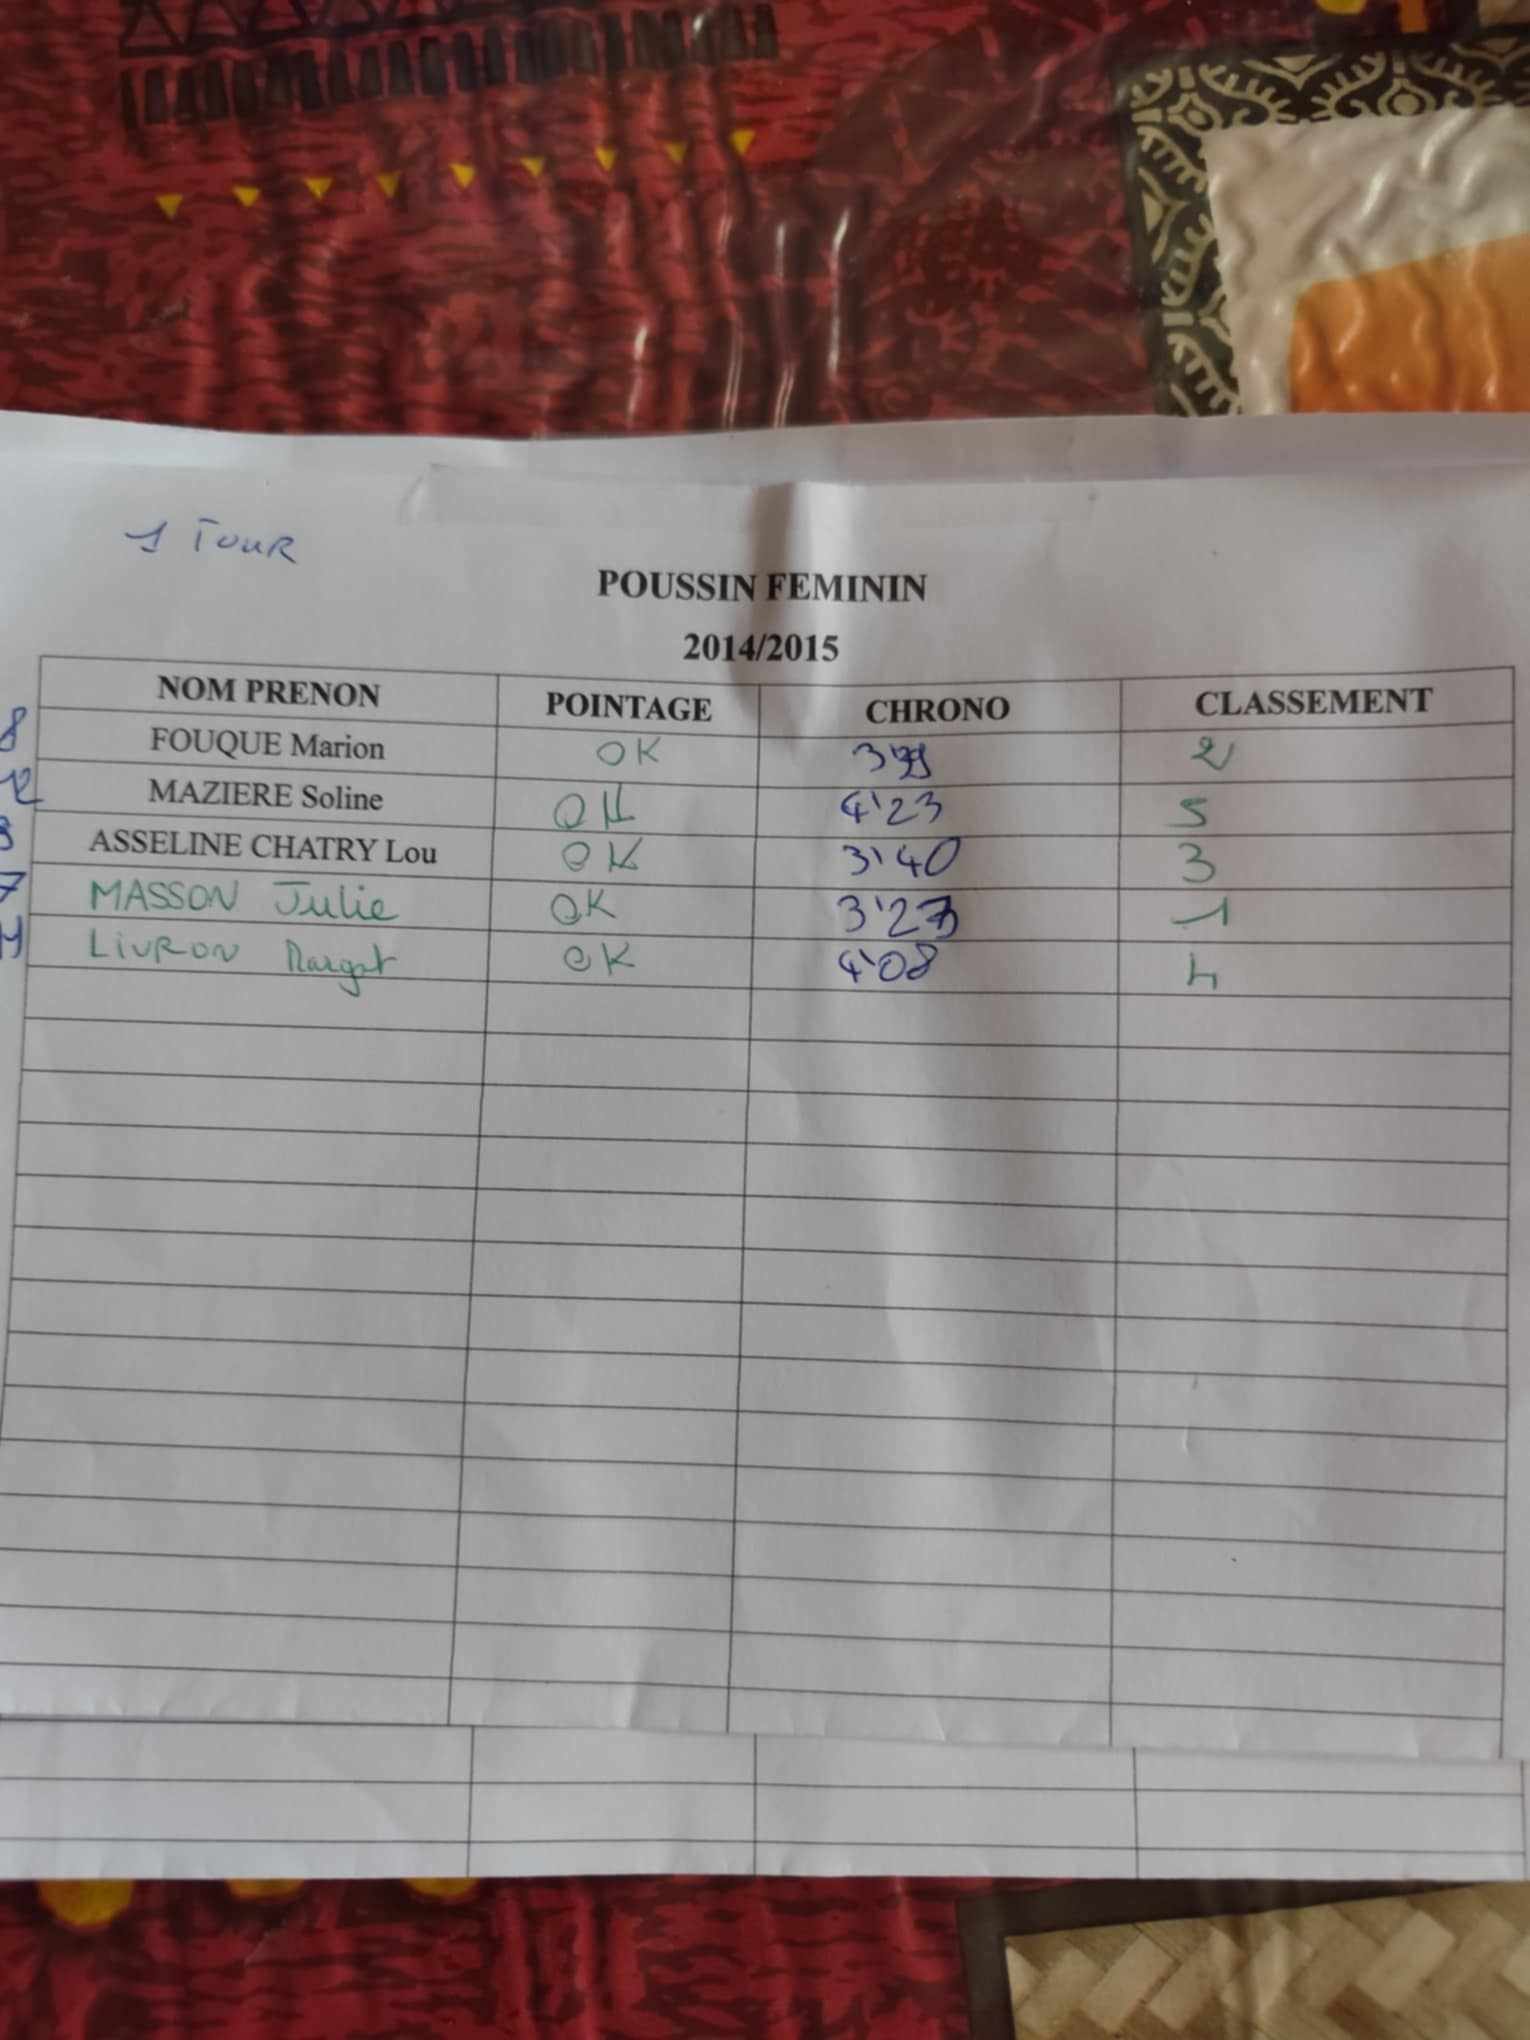 1 TOUR
POUSSIN FEMININ
2014/2015
NOM PRENON POINTAGE CHRONO CLASSEMENT
8 FOUQUE Marion OK 2
MAZIERE Soline OK 4'23 5
3 ASSELINE CHATRY Lou OK 3'40 3
7 MASSON Julie OK 1
LIVRON Margot OK 4'08 4